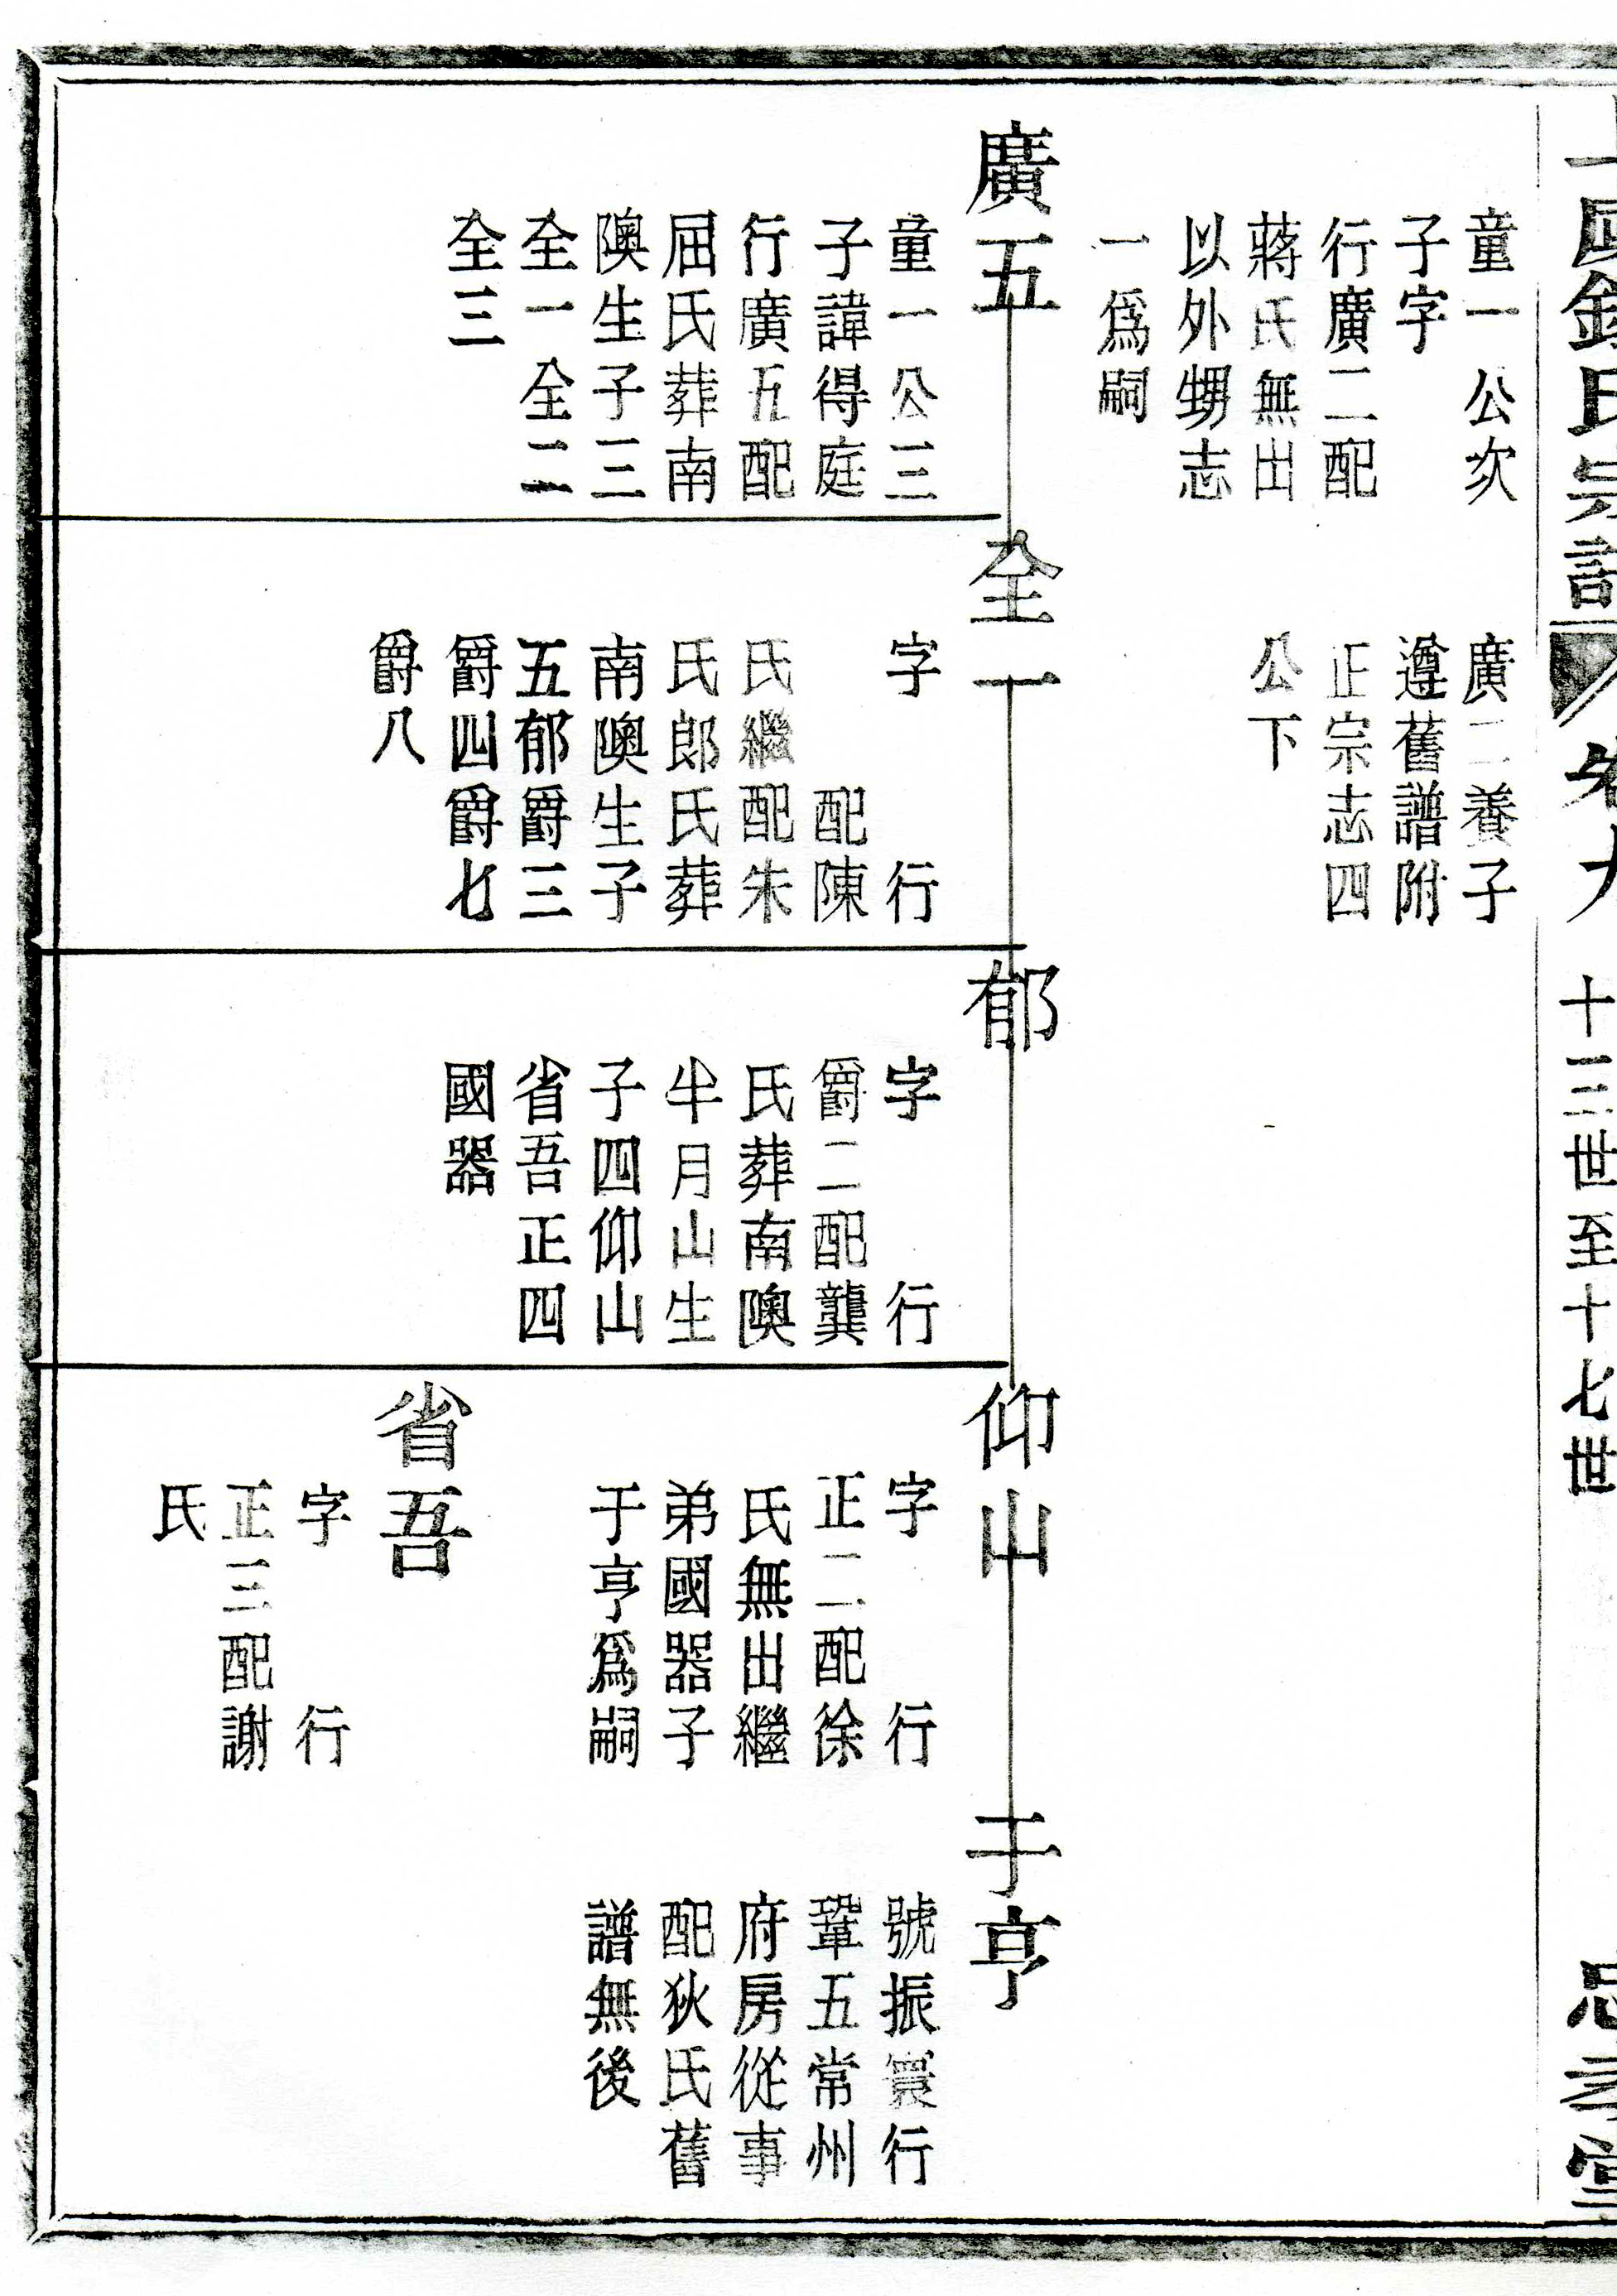 氏宗譜
卷九
十三世至十七世
堂
童一公次
子字
行廣二配
蔣氏無出
以外甥志
一爲嗣
廣二養子
遵舊譜附
正宗志四
公下
廣五
童一公三
子諱得庭
行廣五配
屈氏葬南
隩生子三
全一全二
全三
全一
字行
配陳
氏繼配朱
氏郎氏葬
南隩生子
五郁爵三
爵四爵七
爵八
郁
字行
爵二配龔
氏葬南隩
半月山生
子四仰山
省吾正四
國器
仰山
字行
正二配徐
氏無出繼
弟國器子
于亨爲嗣
省吾
字行
正三配謝
氏
于亨
號振寰行
鞏五常州
府房從事
配狄氏舊
譜無後